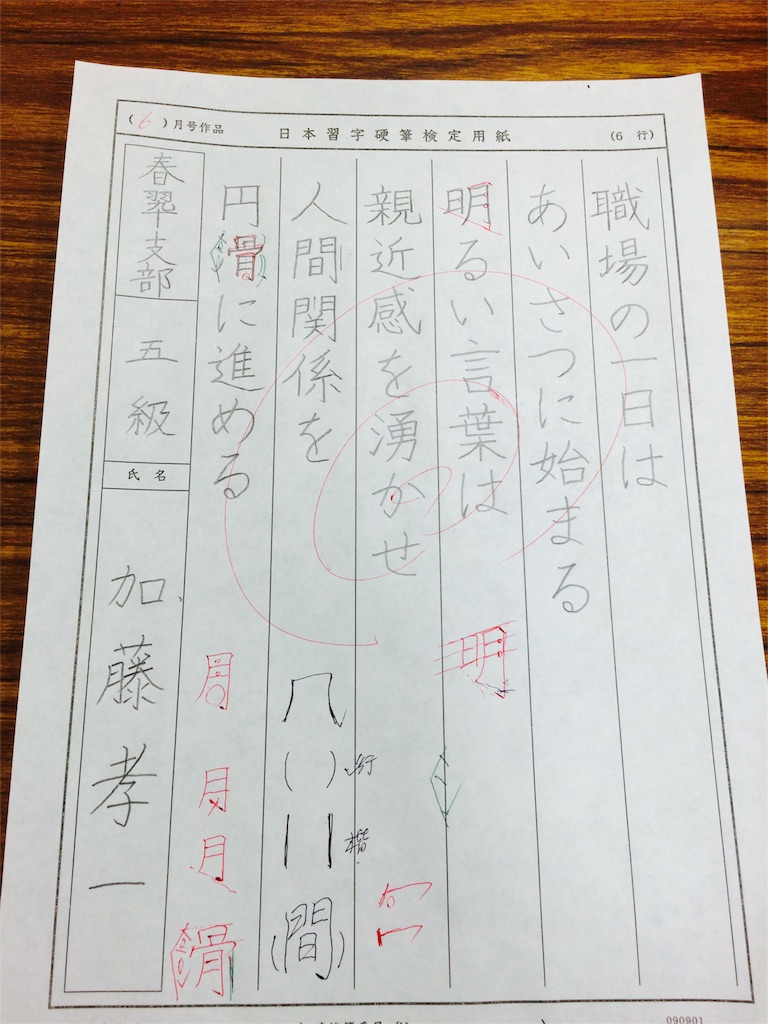 (6)月号作品 日本習字硬筆検定用紙 (6行)
職場の一日は
あいさつに始まる
明るい言葉は
親近感を湧かせ
人間関係を
円滑に進める
春翠支部
五級
氏名
加藤孝一
明
行
楷
(間)
月
月
滑
090901